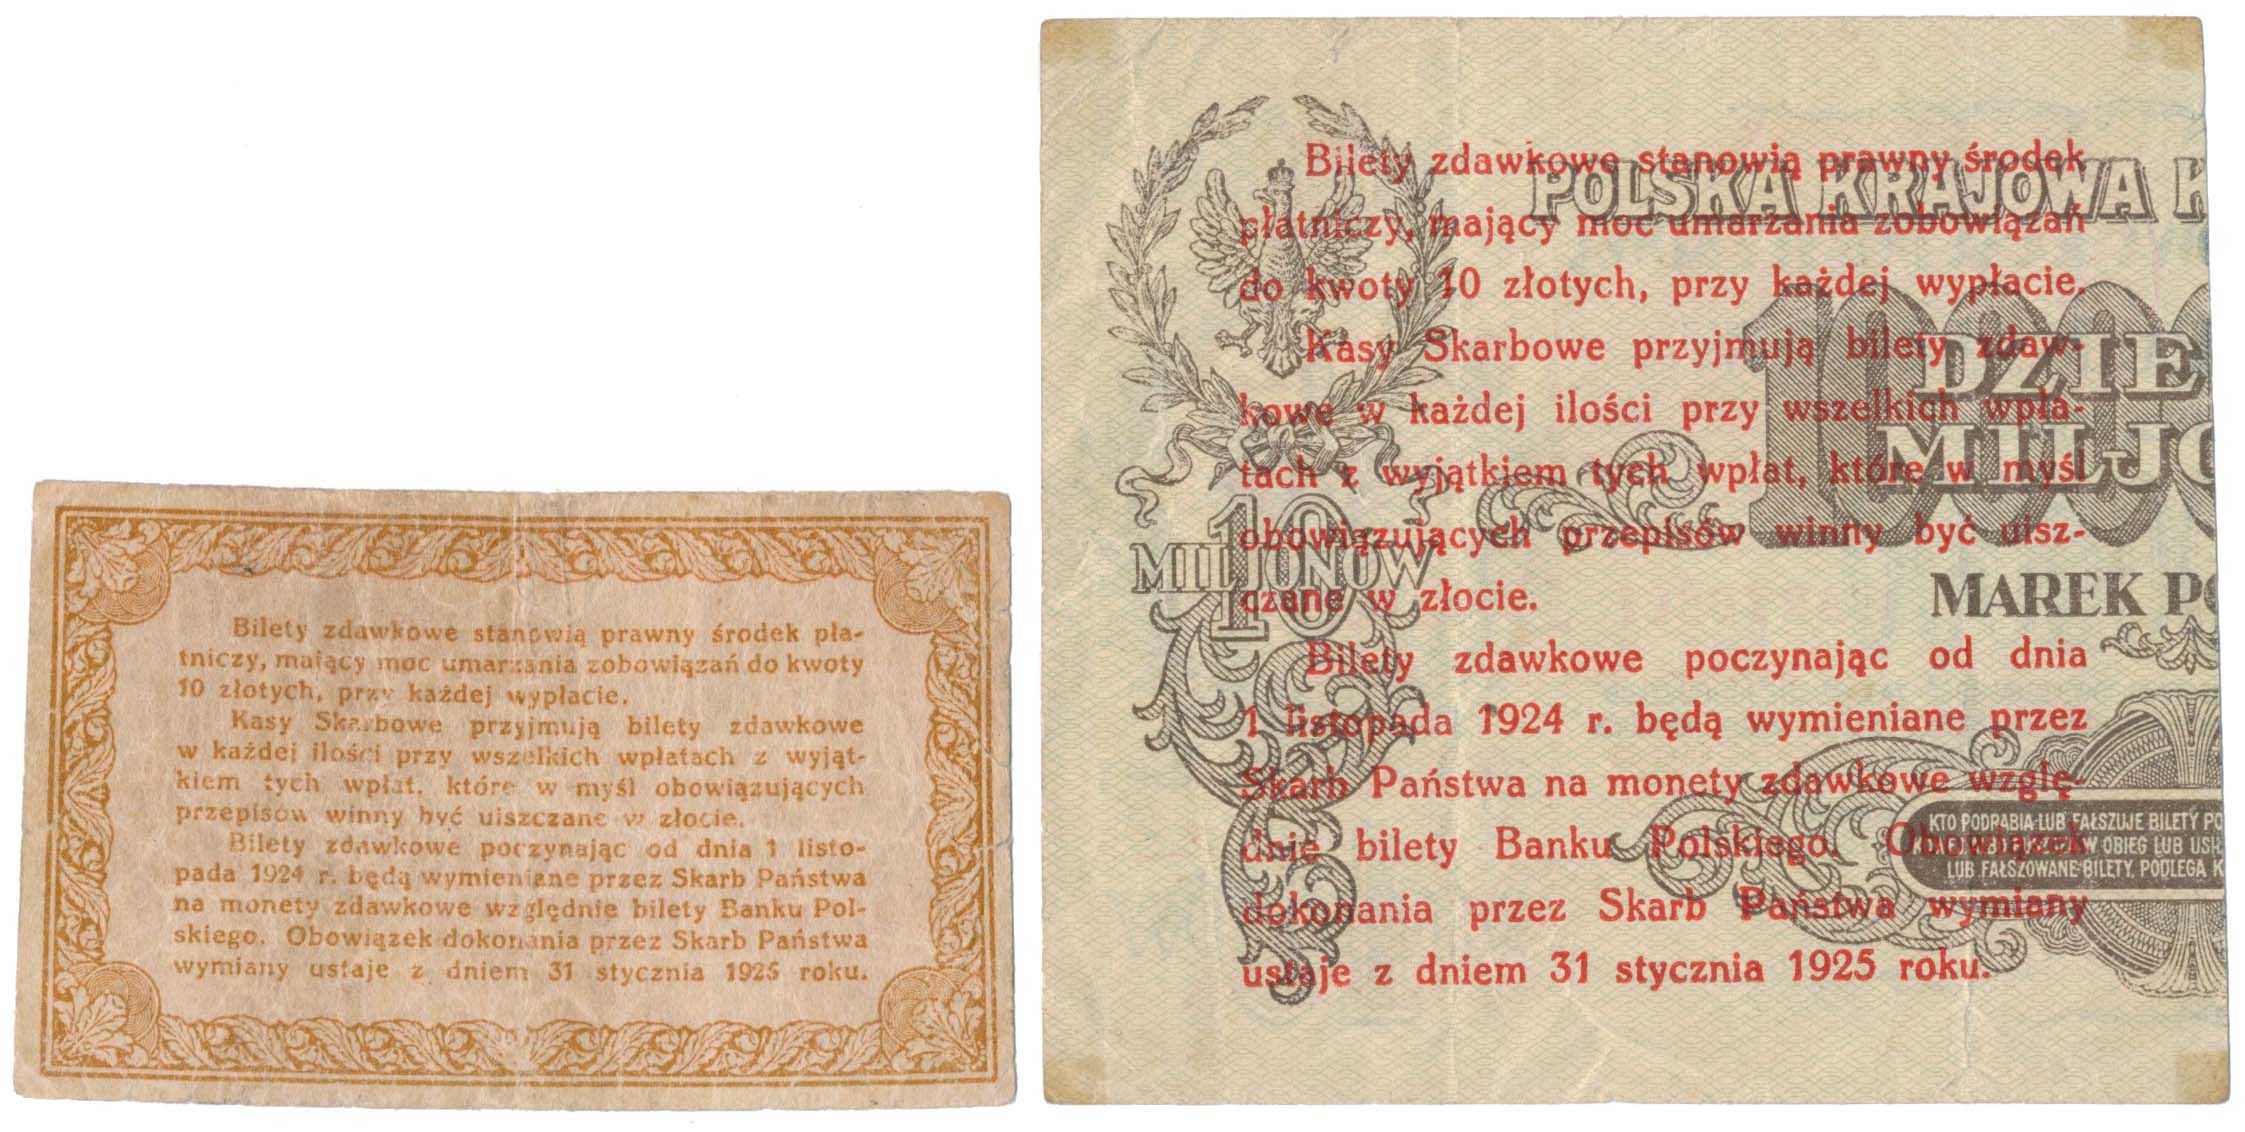 Bilety zdawkowe stanowią prawny środek pła-
tniczy, mający moc umarzania zobowiązań do kwoty
10 złotych, przy każdej wypłacie.
Kasy Skarbowe przyjmują bilety zdawkowe
w każdej ilości przy wszelkich wpłatach z wyjąt-
kiem tych wpłat, które w myśl obowiązujących
przepisów winny być uiszczane w złocie.
Bilety zdawkowe poczynając od dnia 1 listo-
pada 1924 r. będą wymieniane przez Skarb Państwa
na monety zdawkowe względnie bilety Banku Pol-
skiego. Obowiązek dokonania przez Skarb Państwa
wymiany ustaje z dniem 31 stycznia 1925 roku.
Bilety zdawkowe stanowią prawny środek
płatniczy, mający moc umarzania zobowiązań
do kwoty 10 złotych, przy każdej wypłacie.
Kasy Skarbowe przyjmują bilety zdaw-
kowe w każdej ilości przy wszelkich wpła-
tach z wyjątkiem tych wpłat, które w myśl
obowiązujących przepisów winny być uisz-
czane w złocie.
Bilety zdawkowe poczynając od dnia
1 listopada 1924 r. będą wymieniane przez
Skarb Państwa na monety zdawkowe wzglę-
dnie bilety Banku Polskiego. Obowiązek
dokonania przez Skarb Państwa wymiany
ustaje z dniem 31 stycznia 1925 roku.
POLSKA KRAJOWA K
1000
DZIE
MILJO
MAREK PO
10
MILJONÓW
KTO PODRABIA LUB FAŁSZUJE BILETY PO
W OBIEG LUB USI
LUB FAŁSZOWANE BILETY, PODLEGA K